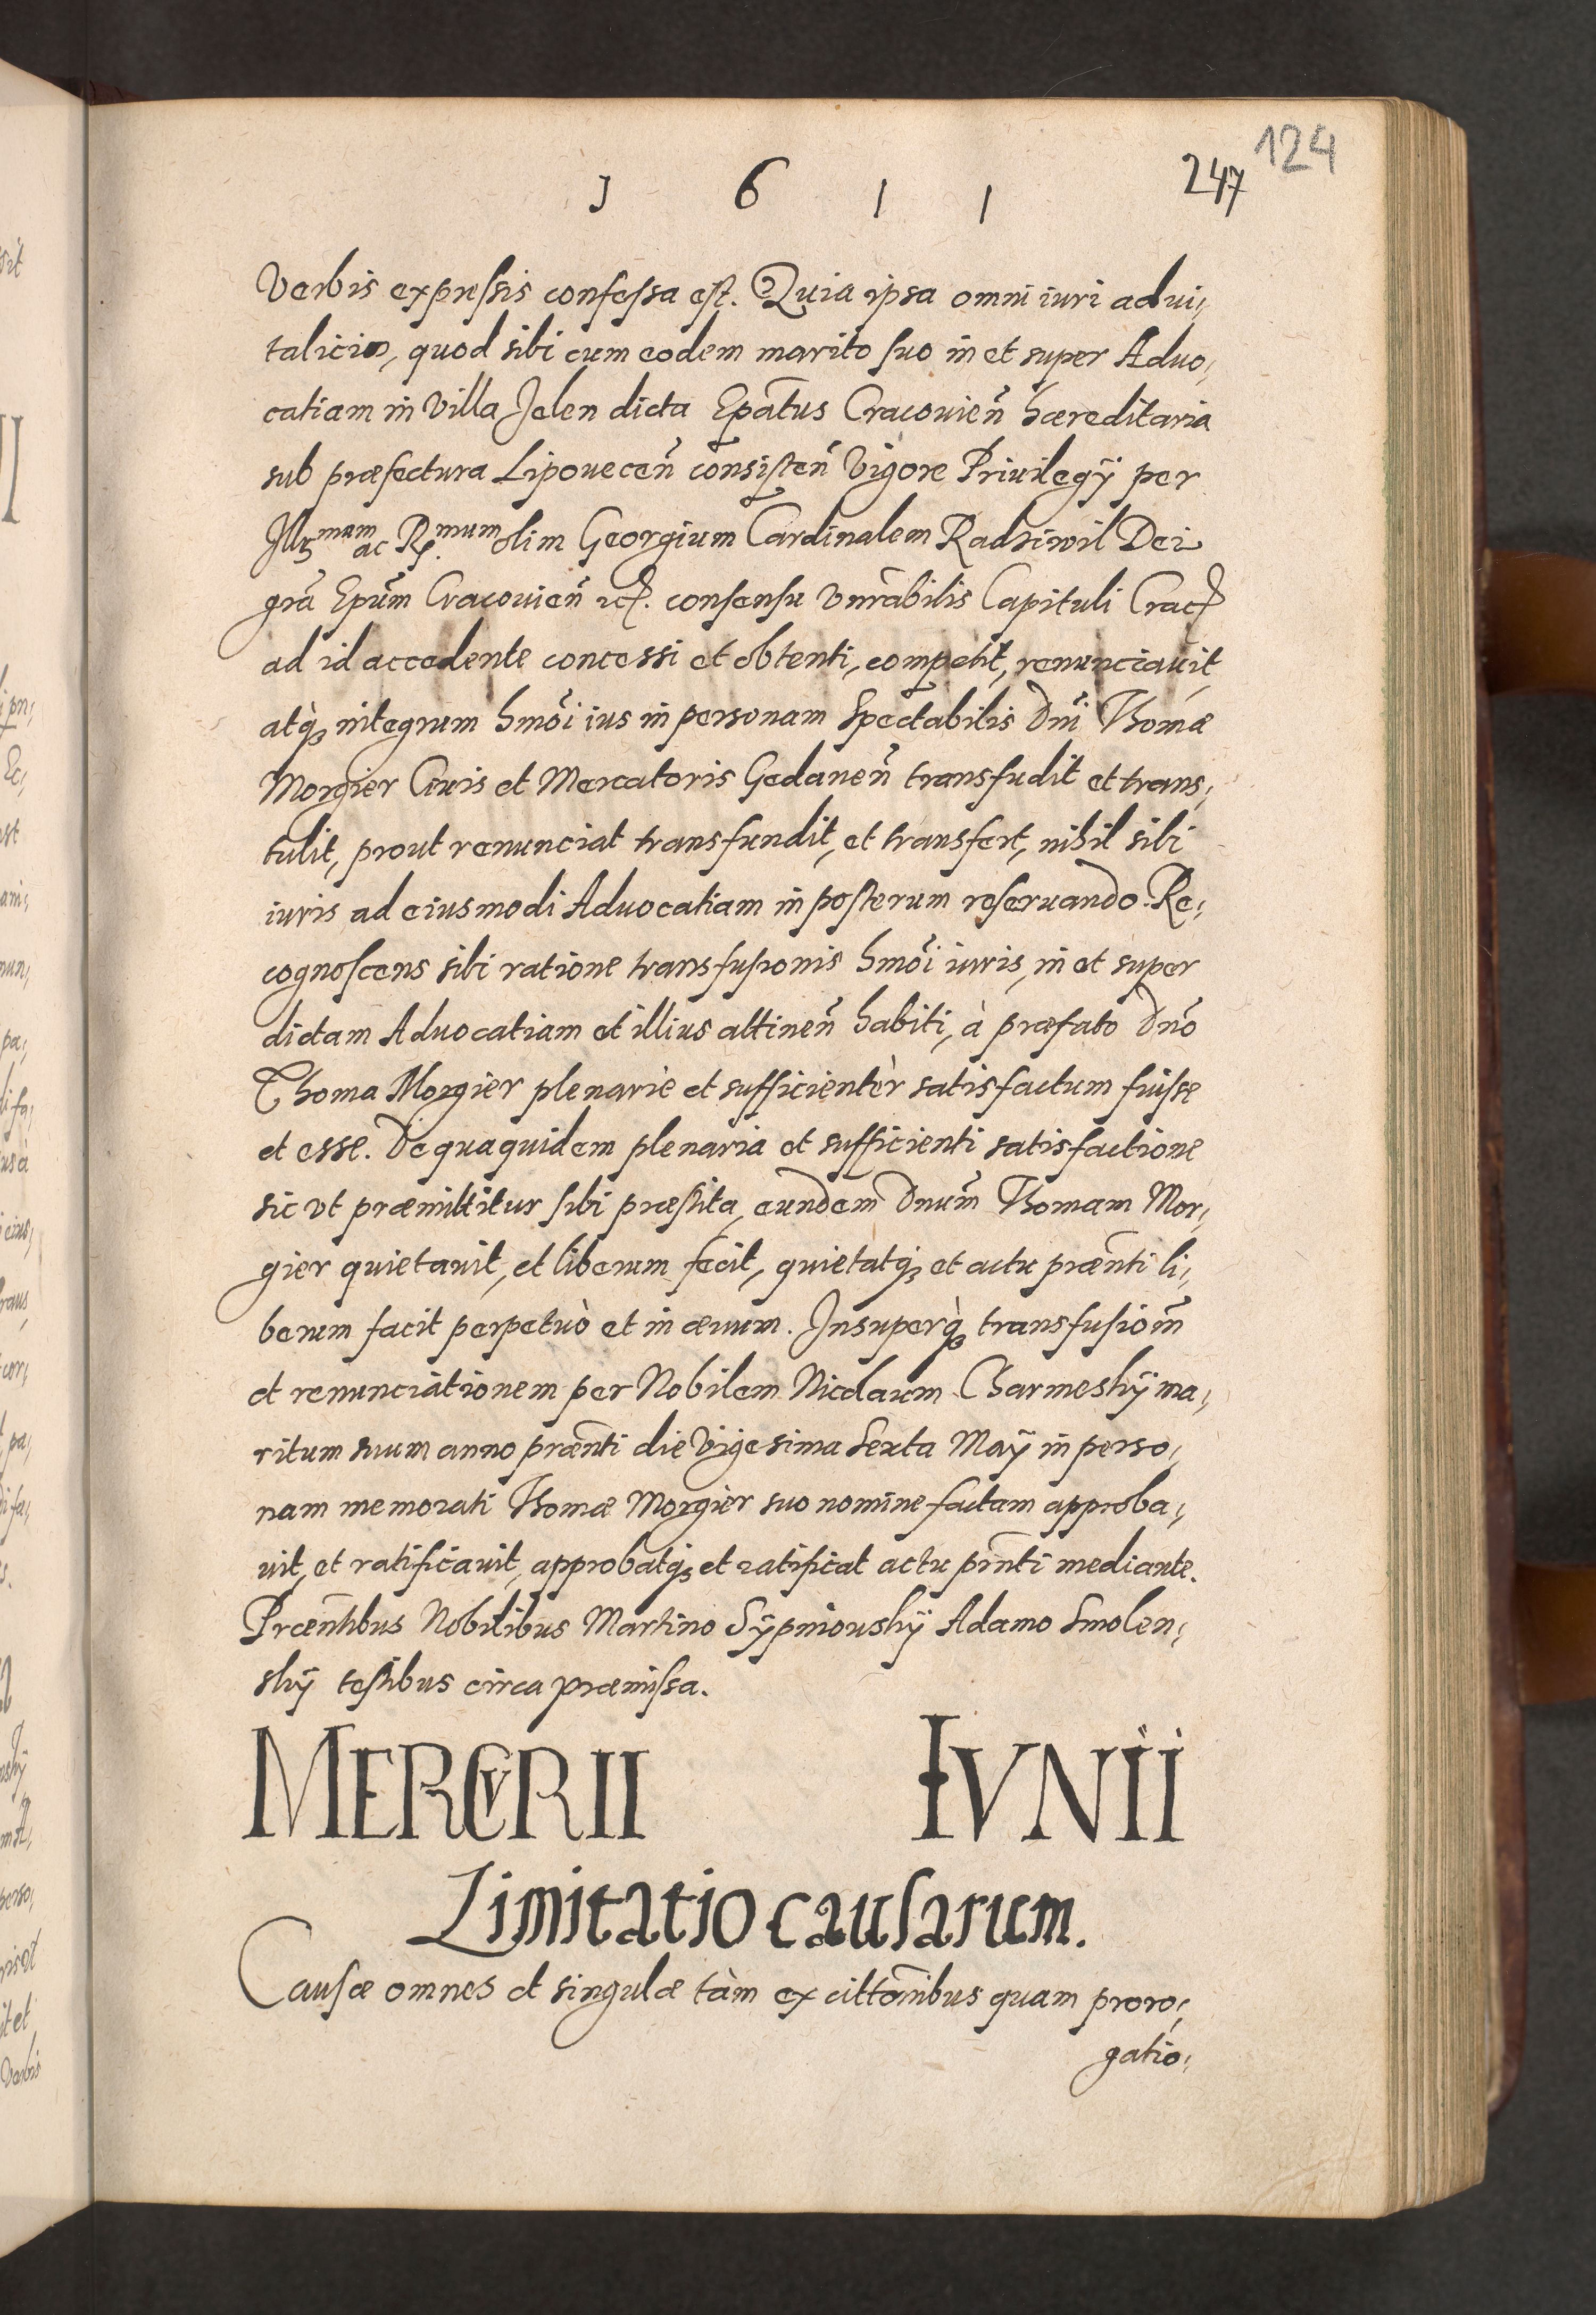 1 6 1 1
247
124
Verbis expressis confessa est. Quia ipsa omni iuri advi,
talicio, quod sibi cum eodem marito suo in et super Aduo,
catiam in Villa Jelen dicta Epãtus Cracouien̄ hæreditaria
sub præfectura Lipouecen̄ consisten̄ Vigore Priuilegÿ per
Ill^mum ac R^mum olim Georgium Cardinalem Radziwil Dei
grã Epũm Cracouien̄ etc. consensu Vnrãbilis Capituli Crac
ad id accedente concessi et obtenti, competit, renunciauit
atq; integrum hmõi ius in personam Spectabilis Dnĩ Thomæ
Morgier Ciuis et Mercatoris Gedanen̄ transfudit et trans,
tulit, prout renunciat transfundit, et transfert, nihil sibi
iuris ad eiusmodi Aduocatiam in posterum reseruando. Re,
cognoscens sibi ratione transfusionis hmõi iuris, in et super
dictam Aduocatiam et illius attinen̄ habiti, à præfato Dnõ
Thoma Morgier plenariè et sufficientèr satisfactum fuisse
et esse. De qua quidem plenaria et sufficienti satisfactione
sic vt præmittitur sibi præstita, eundem Dnũm Thomam Mor,
gier quietauit, et liberum fecit, quietatq; et actu præñti li,
berum facit perpetuò et in æuum. Insuperq; transfusiom̃
et renunciationem per Nobilem Nicolaum Charmeskÿ ma,
ritum suum anno præñti die Vigesima Sexta Maÿ in perso,
nam memorati Thomæ Morgier suo nomine factam approba,
uit, et ratificauit, approbatq; et ratificat actu pr̃nti mediante.
Præñtibus Nobilibus Martino Sÿpniouskÿ Adamo Smolen,
skÿ testibus circa præmissa.
MERCVRII IVNII
Limitatio causarum.
Causæ omnes et singulæ tàm ex cittõnibus quam proro,
gatio,